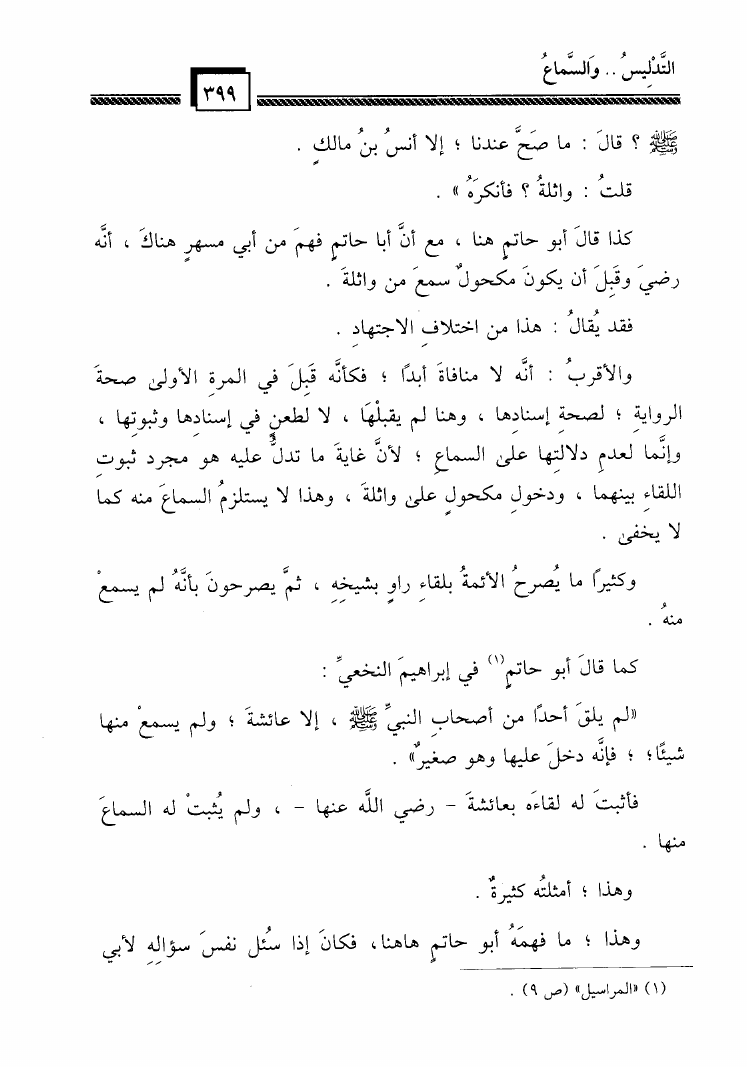 التَّدْلِيسُ .. والسَّماعُ
٣٩٩
ﷺ ؟ قالَ : ما صَحَّ عندنا ؛ إلا أنسُ بنُ مالكٍ .
قلتُ : واثلةُ ؟ فأنكرَهُ » .
كذا قالَ أبو حاتمٍ هنا ، مع أنَّ أبا حاتمٍ فهمَ من أبي مسهرٍ هناكَ ، أنَّه
رضيَ وقَبِلَ أن يكونَ مكحولٌ سمعَ من واثلةَ .
فقد يُقالُ : هذا من اختلافِ الاجتهادِ .
والأقربُ : أنَّه لا منافاةَ أبدًا ؛ فكأنَّه قَبِلَ في المرةِ الأولىٰ صحةَ
الروايةِ ؛ لصحةِ إسنادِها ، وهنا لم يقبلْهَا ، لا لطعنٍ في إسنادِها وثبوتِها ،
وإنَّما لعدمِ دلالتِها علىٰ السماعِ ؛ لأنَّ غايةَ ما تدلُّ عليه هو مجرد ثبوتِ
اللقاءِ بينهما ، ودخولِ مكحولٍ علىٰ واثلةَ ، وهذا لا يستلزمُ السماعَ منه كما
لا يخفىٰ .
وكثيرًا ما يُصرحُ الأئمةُ بلقاءِ راوٍ بشيخِهِ ، ثمَّ يصرحونَ بأنَّهُ لم يسمعْ
منهُ .
كما قالَ أبو حاتمٍ(١) في إبراهيمَ النخعيِّ :
«لم يلقَ أحدًا من أصحابِ النبيِّ ﷺ ، إلا عائشةَ ؛ ولم يسمعْ منها
شيئًا؛ ؛ فإنَّه دخلَ عليها وهو صغيرٌ» .
فأثبتَ له لقاءَه بعائشةَ - رضي اللَّه عنها - ، ولم يُثبتْ له السماعَ
منها .
وهذا ؛ أمثلتُه كثيرةٌ .
وهذا ؛ ما فهمَهُ أبو حاتمٍ هاهنا، فكانَ إذا سُئل نفسَ سؤالِهِ لأبي
(١) «المراسيل» (ص ٩) .